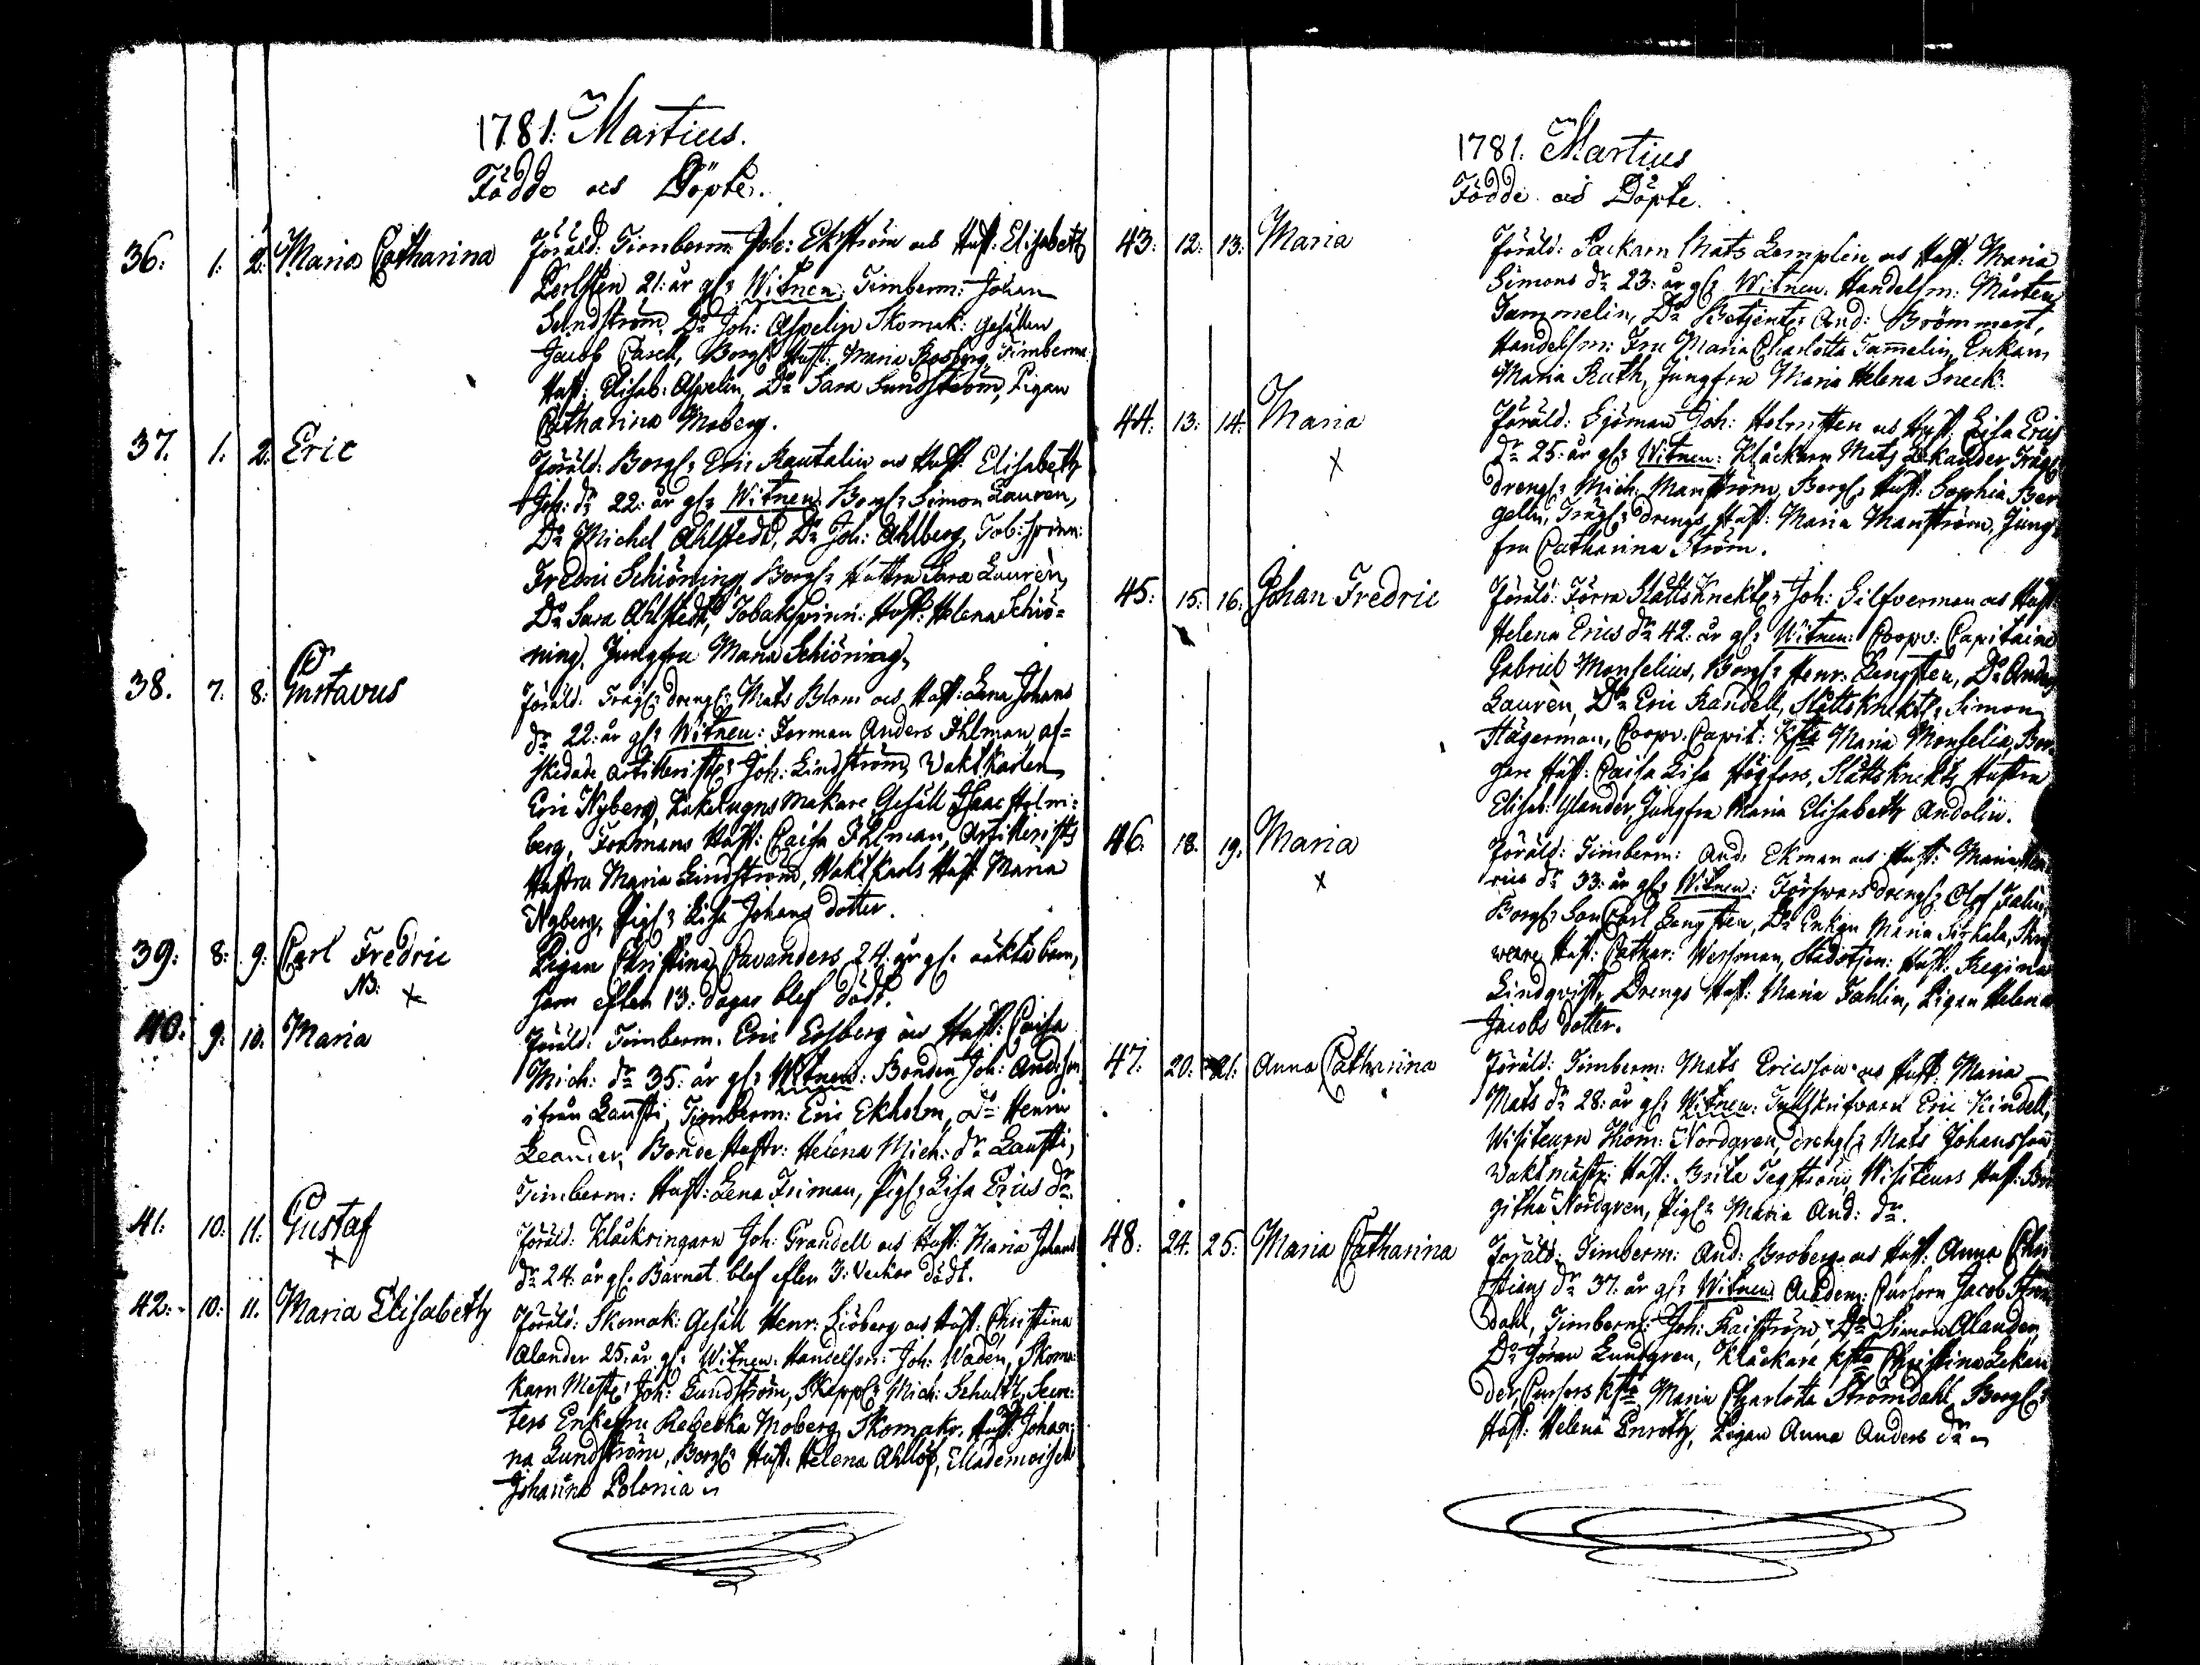 1781. Martius.
Födde och Döpte.
36. 1. 2. Maria Catharina Föräld: Timberm: Joh: Ekström och Hust: Elisabeth
21. år gl: Witnen: Timberm: Johan
Sundström, Do Joh: Aspelin Skomak: Gesällen
Jacob Casch, Borg: Hust: Maria Rosberg, Timberm:
Hust: Elisab: Aspelin, Do Sara Sundström, Pigan
Catharina Moberg.
37. 1. 2. Eric Föräld: Borg: Eric Rautalin och Hust: Elisabeth
Joh: dr 22: år gl: Witnen: Borg: Simon Lauren,
Do Michel Ahlstedt, Do Joh: Ahlberg, Tob: spinn:
Fredric Schiöning, Borg: Hustru Sara Laurèn,
Do Sara Ahlstedt, Tobakspinn: Hust: Helena Schiö=
ning, Jungfru Maria Schiöning.
38. 7. 8. Gustavus Föräld: Mats Blom och Hust: Lena Johans
dr 22: år gl: Witnen: Forman Anders Ihlman, af=
skedade Artilleristen Joh: Lindström, Vaktkarlen
Eric Nyberg, Kakelugnsmakare Gesäll Isaac Holm=
berg, Formans Hust: Caisa Ihlman, Artillerists
Hustru Maria Lindström, Vaktkarls Hust: Maria
Nyberg, Pig: Lisa Johans dotter.
39: 8: 9. Carl Fredric Pigan Christina Cavanders 24. år gl: oäkta barn,
NB: x som efter 13: dagar blef dödt.
40. 9. 10. Maria Föräld: Timberm: Eric Ersberg och Hust: Caisa
Mich: dr 35: år gl: Witnen: Bonden Joh: Anders:
ifrån Lausti, Timberm: Eric Ekholm, Do Henric
Leander, Bonde Hustr: Helena Mich: dr Lausti,
Timberm: Hust: Lena Friman, Pig: Lisa Erics dr
41. 10. 11. Gustaf Föräld: Klåckringarn Joh: Grandell och Hust: Maria Johans
x dr 24: år gl: Barnet blef efter 3: Veckor dödt.
42. 10: 11. Maria Elisabeth Föräld: Skomak: Gesäll Henr: Siöberg och Hust: Christina
Alander 25: år gl: Witnen: Handelsm: Joh: Wadèn, Skoma
karn Mest: Joh: Lundström, Skepp: Mich: Schultz,
Enkefru Rebecka Moberg, Skomakr. Hust: Johan=
na Lundström, Borg: Hust: Helena Ahllöf, Mademoisell
Johanna Polonia
1781. Martius
Födde och Döpte.
43: 12. 13. Maria Föräld: Packarn Mats Lemplin och Hust: Maria
Simons dr 23: år gl: Witnen: Handelsm: Mårten
Tammelin, Do Betjent: And: Brömmert,
Handelsm: Fru Maria Charlotta Tammelin, Enkan
Maria Ruth, Jungfru Maria Helena Sneck.
44. 13. 14. Maria Föräld: Sjöman Joh: Holmsten och Hust: Lisa Erics
x dr 25: år gl: Witnen: Klåckarn Mats Lekander
dreng: Mich: Manström, Borg: Hust: Sophia Ber
gelin, drengs Hust: Maria Manström, Jung=
fru Catharina Ström.
45. 15. 16. Johan Fredric Föräld: Förra Slåttsknekt: Joh: Silfverman och Hust:
Helena Erics dr 42: år gl: Witnen: Coopv: Capitaine
Gabriel Monselius, Borg: Henr: Lengsten, Do Anders
Laurèn, Do Eric Randell, Slåttsknekt: Simon
Hägerman, Coopv. Capit: Maria Monselia, Bor
gare Hust: Caisa Lisa Högfors, Slåttsknekts Hustru
Elisab: Ylander, Jungfru Maria Elisabeth Andolin.
46. 18. 19. Maria Föräld: Timberm: And: Ekman och Hust: Maria Hen
x rics dr 33: år gl: Witnen: Försvarsdreng: Olof
Borg: Son Carl Lengsten, Do Enkan Maria Sirkala,
Hust: Cathar: Wessman, Stadstjen: Hust: Regina
Lindqvist, Drengs Hust: Maria Fahlin, Pigan Helena
Jacobs dotter.
47. 20. 21. Anna Catharina Föräld: Timberm: Mats Ericsson och Hust: Maria
Mats dr 28: år gl: Witnen: Eric Kindell,
Visiteurn Thom: Nordgren, dreng: Mats Johansson
Vaktmäst: Hust: Brita Tegström, Visiteurs Hust: Bir
githa Nordgren, Pig: Maria And: dr.
48. 24. 25. Maria Catharina Föräld: Timberm: And: Broberg och Hust: Anna Chri
stians dr 37. år gl: Witnen: Academ: Cursorn Jacob Ström
dahl, Timberm: Joh: Kaiström, Do Simon Alander,
Do Jöran Lundgren, Klåckare Christina Lekan
der, Cursors Maria Charlotta Strömdahl, Borg:
Hust: Helena Enroth, Pigan Anna Anders dr